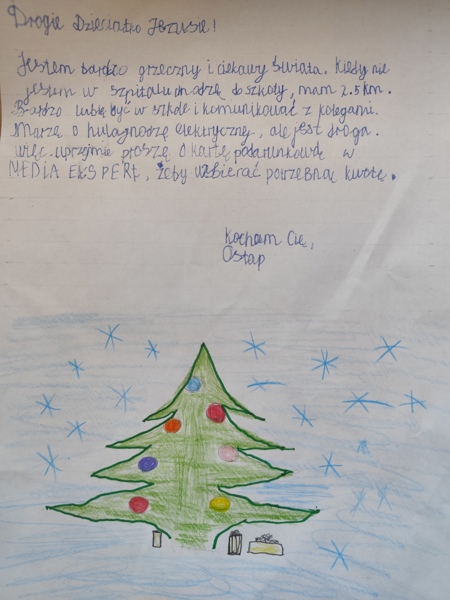 Drogie Dzieciątko Jezusie!
Jestem bardzo grzeczny i ciekawy świata. Kiedy nie
jestem w szpitalu chodzę do szkoły, mam 2.5 km.
Bardzo lubię być w szkole i komunikować z kolegami.
Marzę o hulajnodze elektrycznej, ale jest droga.
więc uprzejmie proszę o kartę podarunkową w
MEDIA EKSPERT, żeby uzbierać potrzebną kwotę.
Kocham Cię,
Ostap